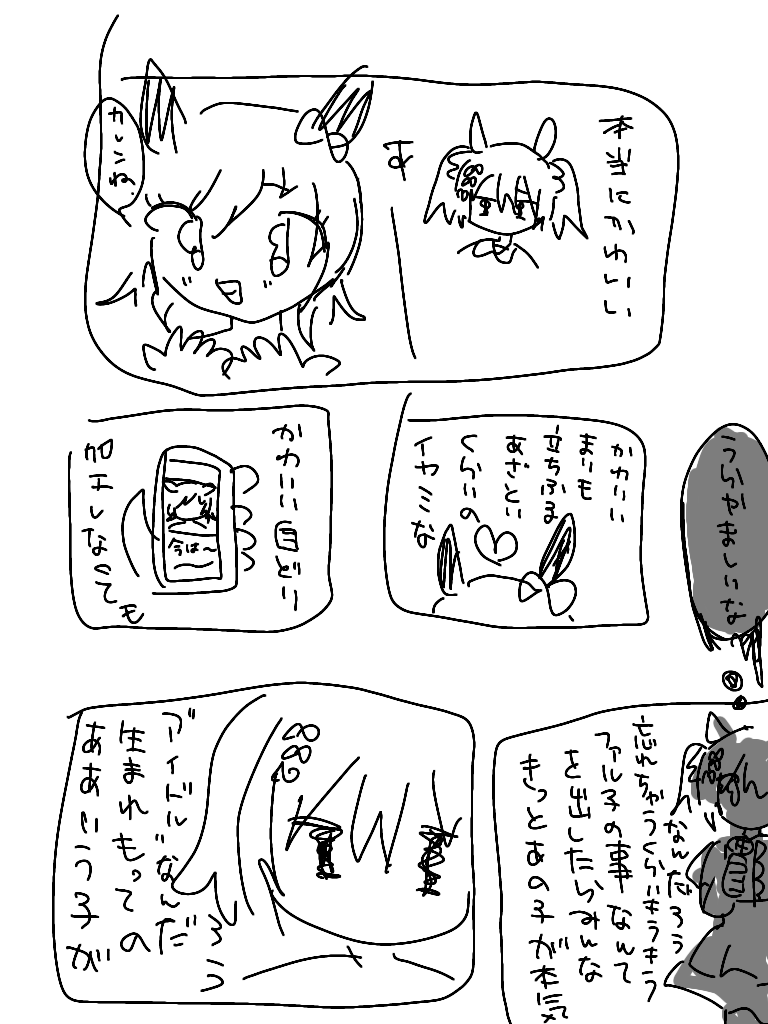 カレンね、
す
本当にかわいい
加工しなくても
今は〜
かわいい自どり
イヤミな
くらいの
あざとい
立ちふる
まいも
かわいい
うらやましいな
ああいう子が
生まれもっての
"アイドル"なんだ
ろう
きっとあの子が本気
を出したらみんな
ファル子の事なんて
忘れちゃうくらいキラキラ
なんだろう